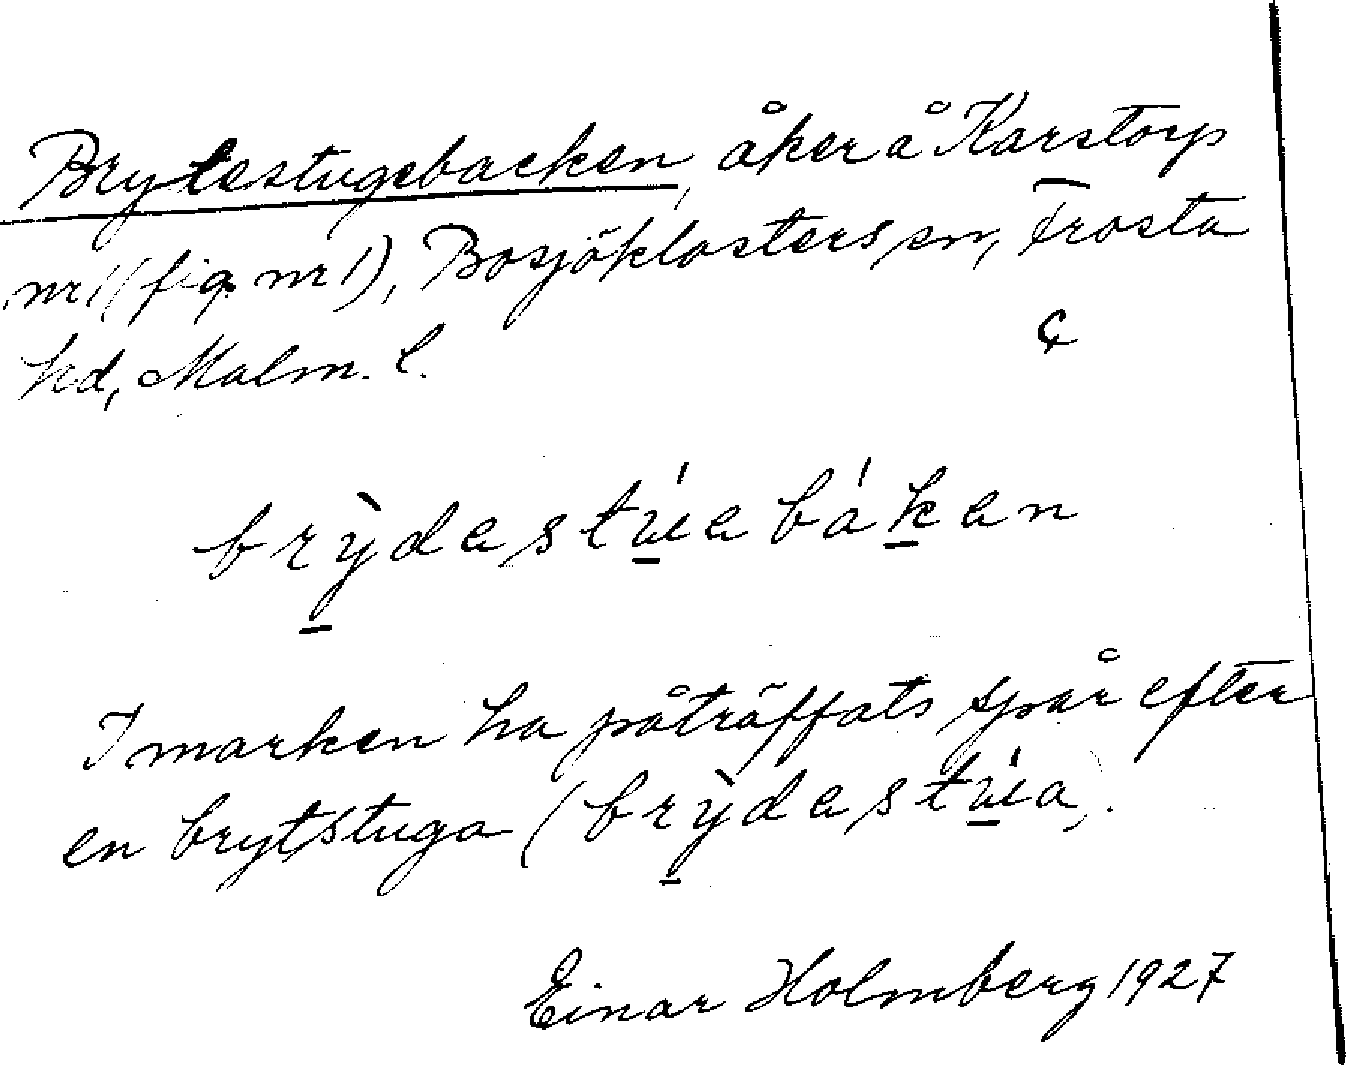 Brytestugebacken, åker å Karstorp
nr 1 (fig. nr 1), Bosjöklosters sn, Frosta
hd, Malm. l.
brỳdestúebákan
I marken ha påträffats spår efter
en brytstuga (brỳdestúa).
Einar Holmberg 1927